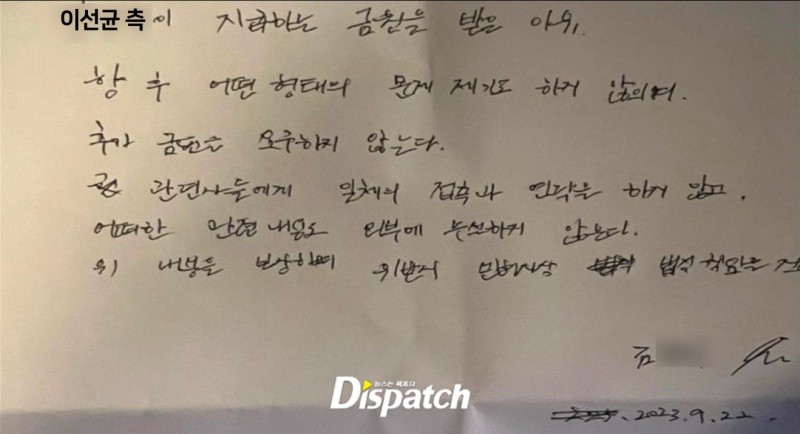 이선균 측이 지급하는 금원을 받은 이후,
향후 어떤 형태의 문제 제기도 하지 않으며,
추가 금원을 요구하지 않는다.
관련자들에게 일체의 접촉과 연락을 하지 않고,
어떠한 관련 내용도 외부에 누설하지 않는다.
위 내용을 보장하며 위반시 민형사상 법적 책임을
김
뉴스는 팩트다
Dispatch
2023.9.22.